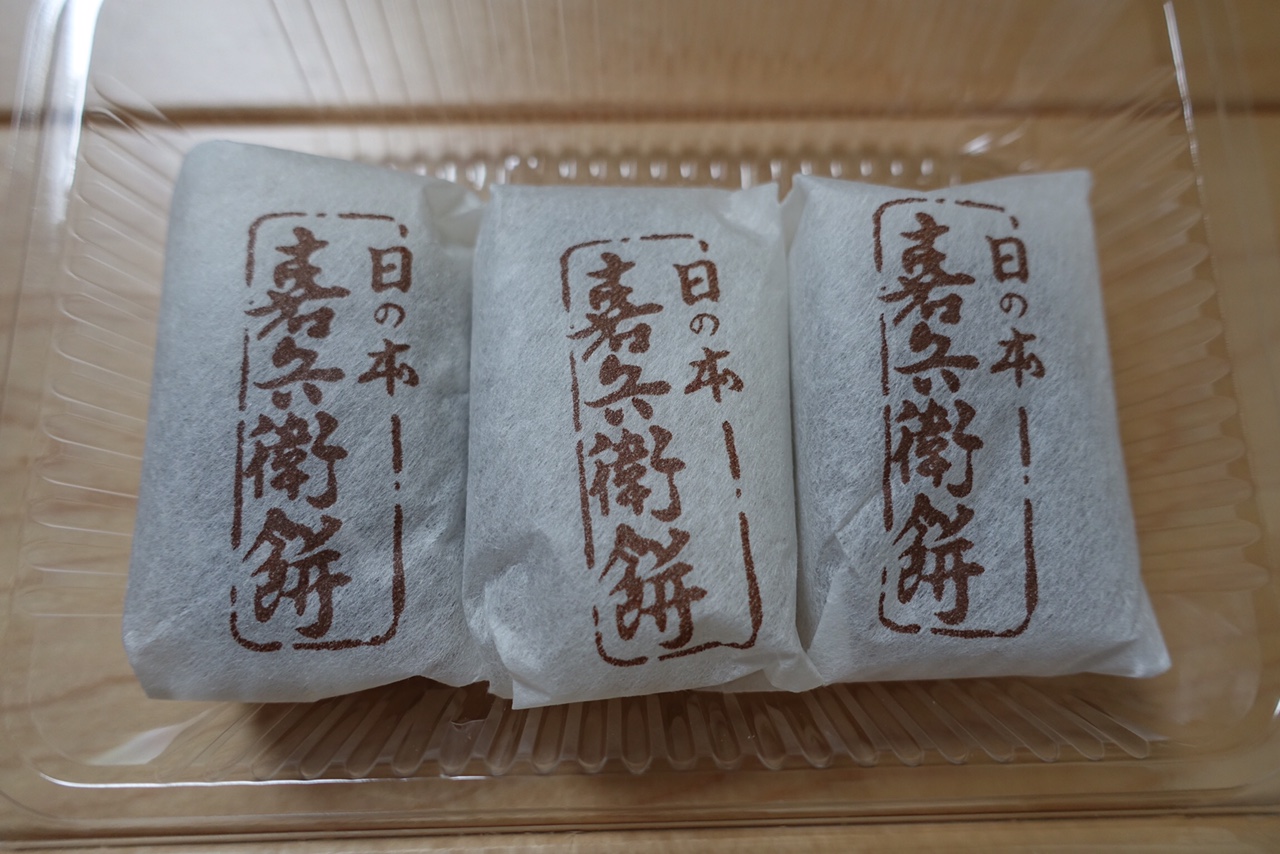 日の本
嘉兵衛餅
日の本
嘉兵衛餅
日の本
嘉兵衛餅